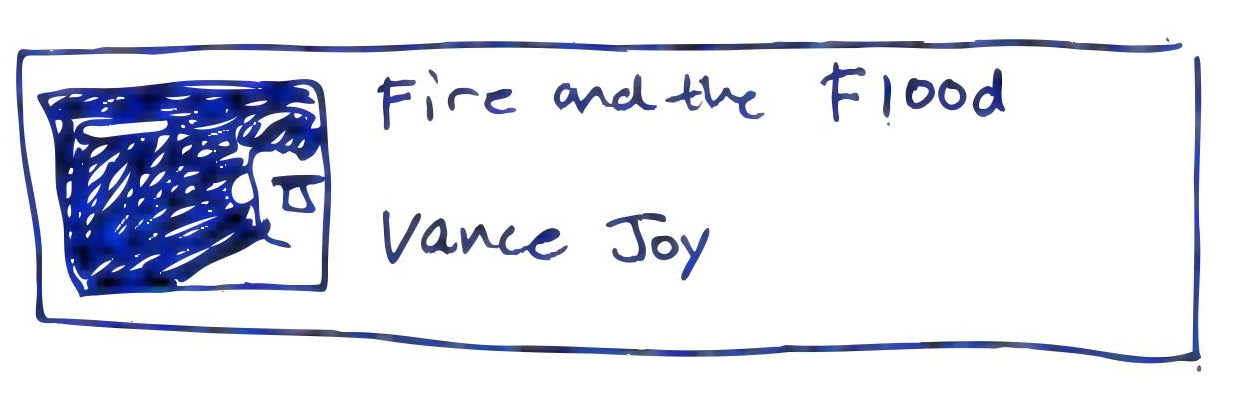 Fire and the Flood
Vance Joy